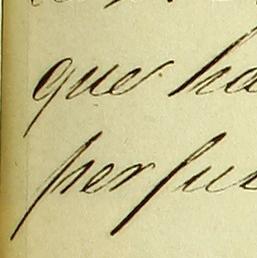 que ha
perfu